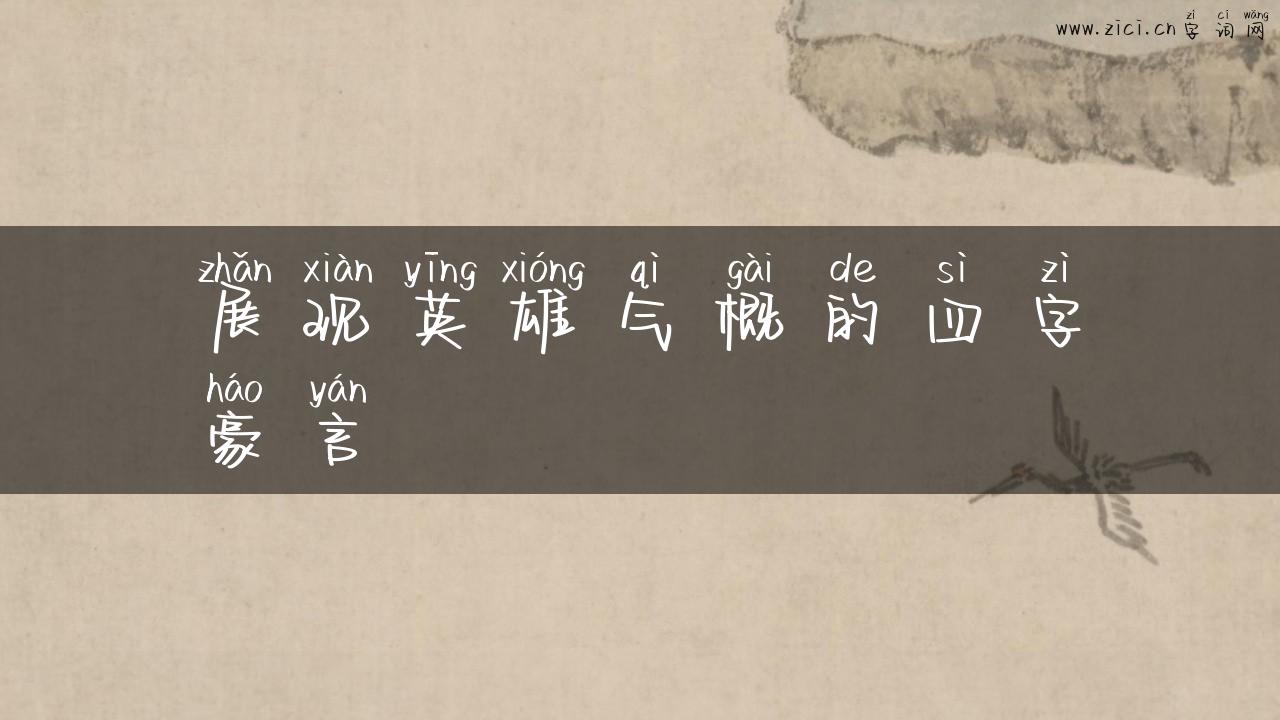 zì cí wǎng
www.zici.cn字词网
zhǎn xiàn yīng xióng qì gài de sì zì
展现英雄气概的四字
háo yán
豪言